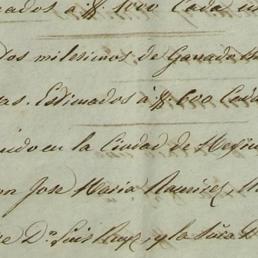 ados á $ 1000 Cada un
Dos mil erinos de Ganado
as. Estimados á $ 600 Cada
ido en la Ciudad de Mejic
on Jose Maria Ramirez,
e Dn. Luis Ruyz, y la Sra. D